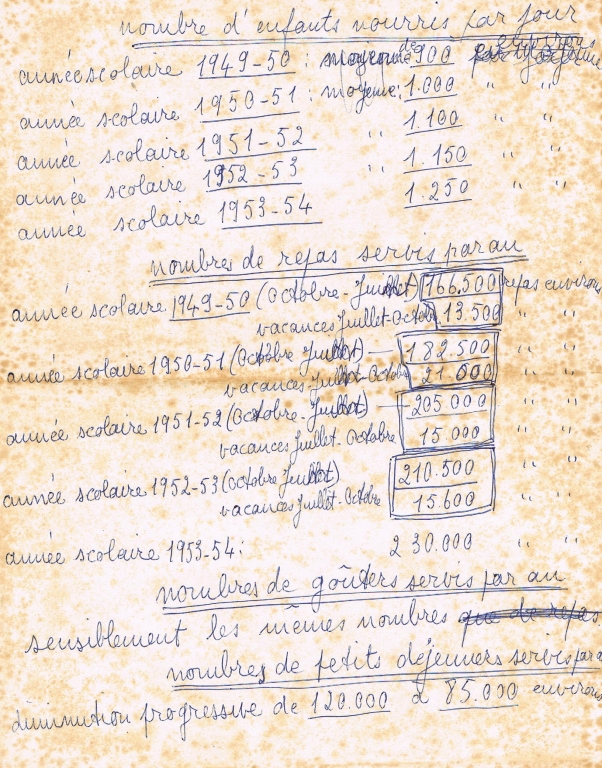 nombre d'enfants nourris par jour
année scolaire 1949-50 : moyenne de 900 environs
année scolaire 1950-51 : moyenne : 1.000 " "
année scolaire 1951-52 " 1.100 " "
année scolaire 1952-53 " 1.150 " "
année scolaire 1953-54 1.250 " "
nombres de repas servis par an
année scolaire 1949-50 (Octobre-Juillet) 166.500 repas environs
vacances Juillet-Octobre 13.500 " "
année scolaire 1950-51 (Octobre Juillet) — 182.500 " "
vacances Juillet-Octobre 21.000 " "
année scolaire 1951-52 (Octobre-Juillet) — 205.000 " "
vacances Juillet-Octobre 15.000 " "
année scolaire 1952-53 (Octobre Juillet) 210.500 " "
vacances Juillet-Octobre 15.600 " "
année scolaire 1953-54 : 230.000 " "
nombres de goûters servis par an
sensiblement les mêmes nombres que de repas
nombres de petits déjeuners servis par a
diminution progressive de 120.000 à 85.000 environs